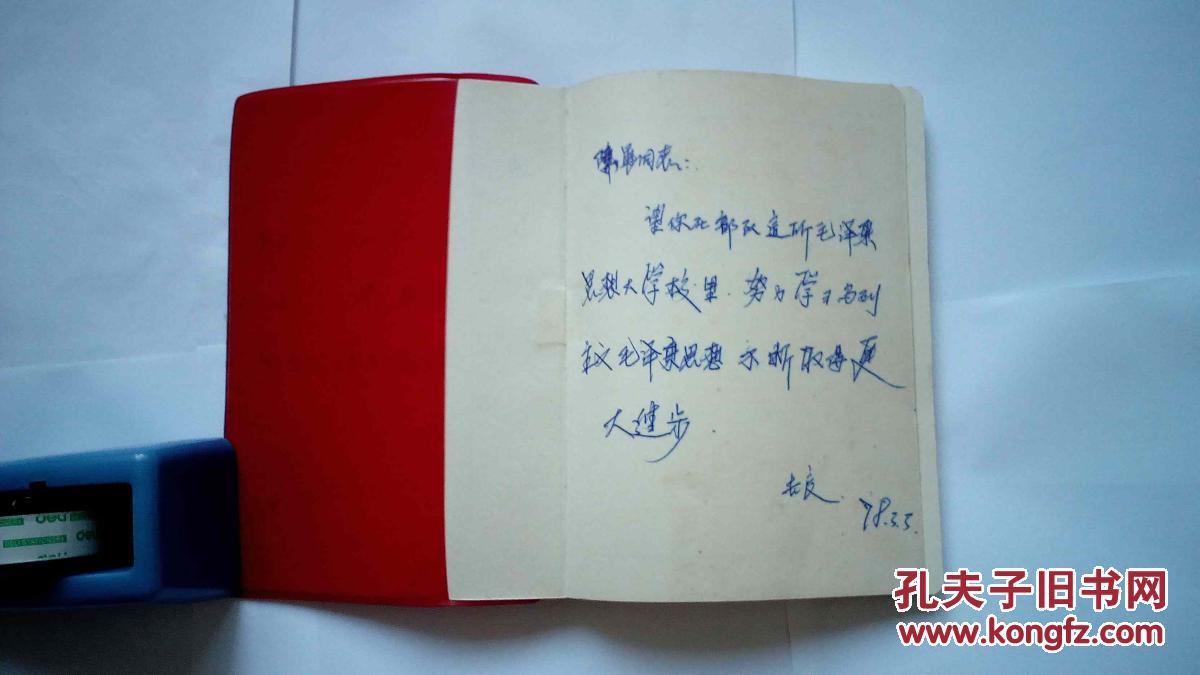 同志:
望你在部队这所毛泽东
思想大学校里.努力学习马列
主义毛泽东思想 不断取得更
大进步.
78.3.5.
deli
DELI STATIONERY
deli
孔夫子旧书网
www.kongfz.com